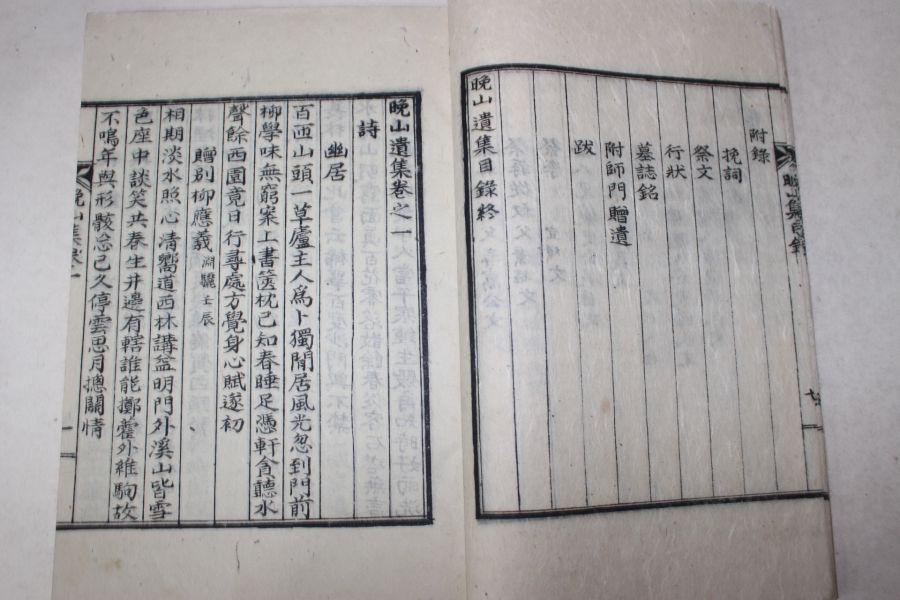 附錄
挽詞
祭文
行狀
墓誌銘
附師門贈遺
跋
晚山遺集目錄終
晚山集目錄
晚山遺集卷之一
詩
幽居
百匝山頭一草廬主人爲卜獨閒居風光忽到門前
柳學味無窮案上書篋枕已知春睡足憑軒貪聽水
聲餘西園竟日行尋處方覺身心賦遂初
贈別柳應羲淵龍壬辰
相期淡水照心淸嚮道西林講益明門外溪山皆雪
色座中談笑共春生井邊有轄誰能擲藿外維駒故
不鳴年與形骸忘已久停雲思月摠關情
晚山集卷一